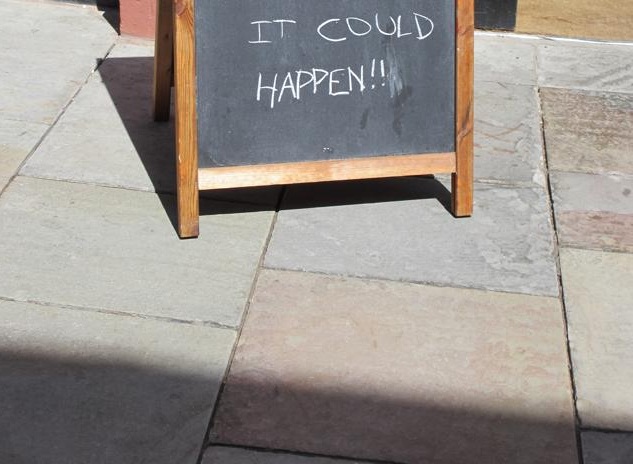 IT COULD
HAPPEN!!